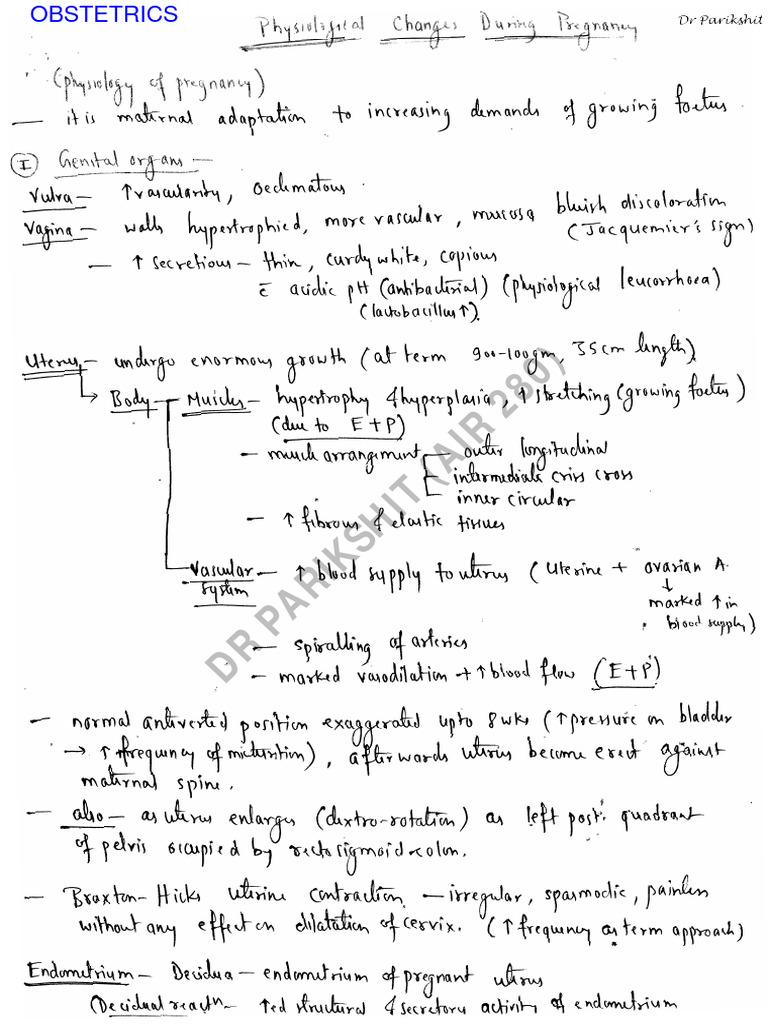 OBSTETRICS
Physiological Changes During Pregnancy
Dr Parikshit
(physiology of pregnancy)
— it is maternal adaptation to increasing demands of growing foetus.
I Genital organs —
Vulva — ↑vascularity, oedematous.
Vagina — walls hypertrophied, more vascular, mucosa bluish discoloration
(Jacquemier's sign)
— ↑ secretions — thin, curdy white, copious
c̄ acidic pH (antibacterial) (physiological leucorrhoea)
(lactobacillus↑).
Uterus — undergo enormous growth (at term 900-100gm, 35cm length)
→ Body — Muscles — hypertrophy & hyperplasia, ↑ stretching (growing foetus)
(due to E+P)
— muscle arrangement — outer longitudinal
— intermediate criss cross
— inner circular
— ↑ fibrous & elastic tissues
Vascular system — ↑ blood supply to uterus (Uterine + ovarian A.
↓
marked ↑ in
blood supply)
— spiralling of arteries
— marked vasodilation → ↑ blood flow (E+P)
— normal antiverted position exaggerated upto 8wks (↑pressure on bladder
→ ↑ frequency of micturition), afterwards uterus become erect against
maternal spine.
— also — as uterus enlarges (dextro-rotation) as left post. quadrant
of pelvis occupied by rectosigmoid colon.
— Braxton-Hicks uterine contraction — irregular, spasmodic, painless
without any effect on dilatation of cervix. (↑ frequency as term approach)
Endometrium — Decidua — endometrium of pregnant uterus
(Decidual reactn — ↑ed structural & secretory activity of endometrium
DR PARIKSHIT (AIR 280)